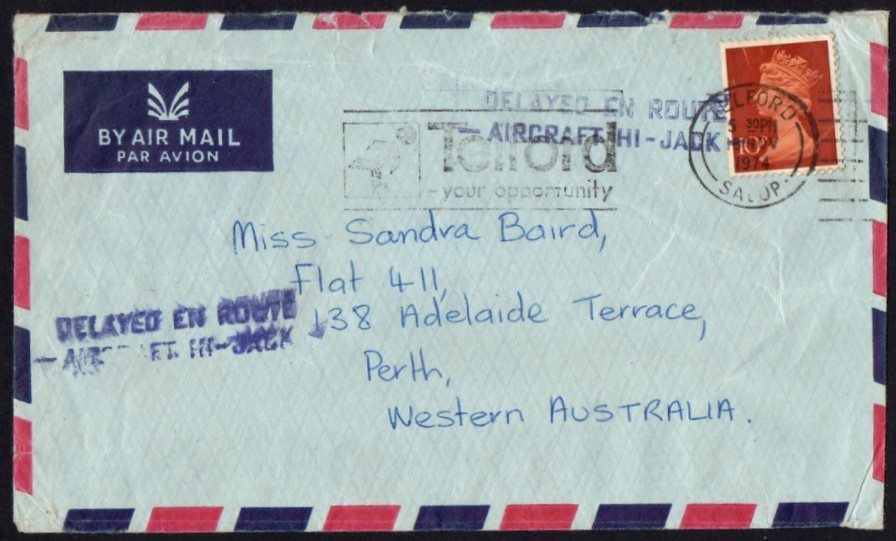 BY AIR MAIL
PAR AVION
DELAYED EN ROUTE
- AIRCRAFT HI-JACK
Telford
- your opportunity
5 30PM
NOV
1974
SALOP
Miss Sandra Baird,
Flat 411,
138 Adelaide Terrace,
Perth,
Western AUSTRALIA.
DELAYED EN ROUTE
- AIRCRAFT HI-JACK